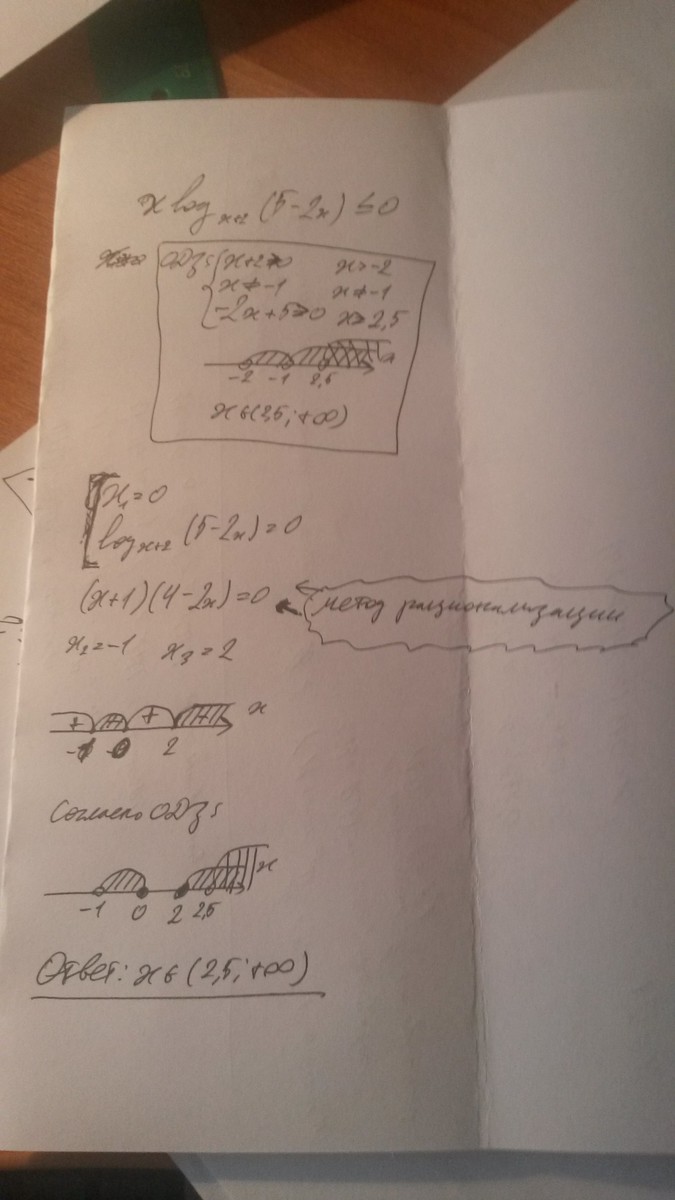 x log_{x+2} (5-2x) ≤ 0
ОДЗ: { x+2>0 x>-2
x≠-1 x≠-1
-2x+5>0 x>2,5
x
-2 -1 2,5
x∈(2,5; +∞)
[ x₁=0
log_{x+2} (5-2x)=0
(x+1)(4-2x)=0 метод рационализации
x₂=-1 x₃=2
+ + + + x
-1 0 2
Согласно ОДЗ:
x
-1 0 2 2,5
Ответ: x∈(2,5; +∞)